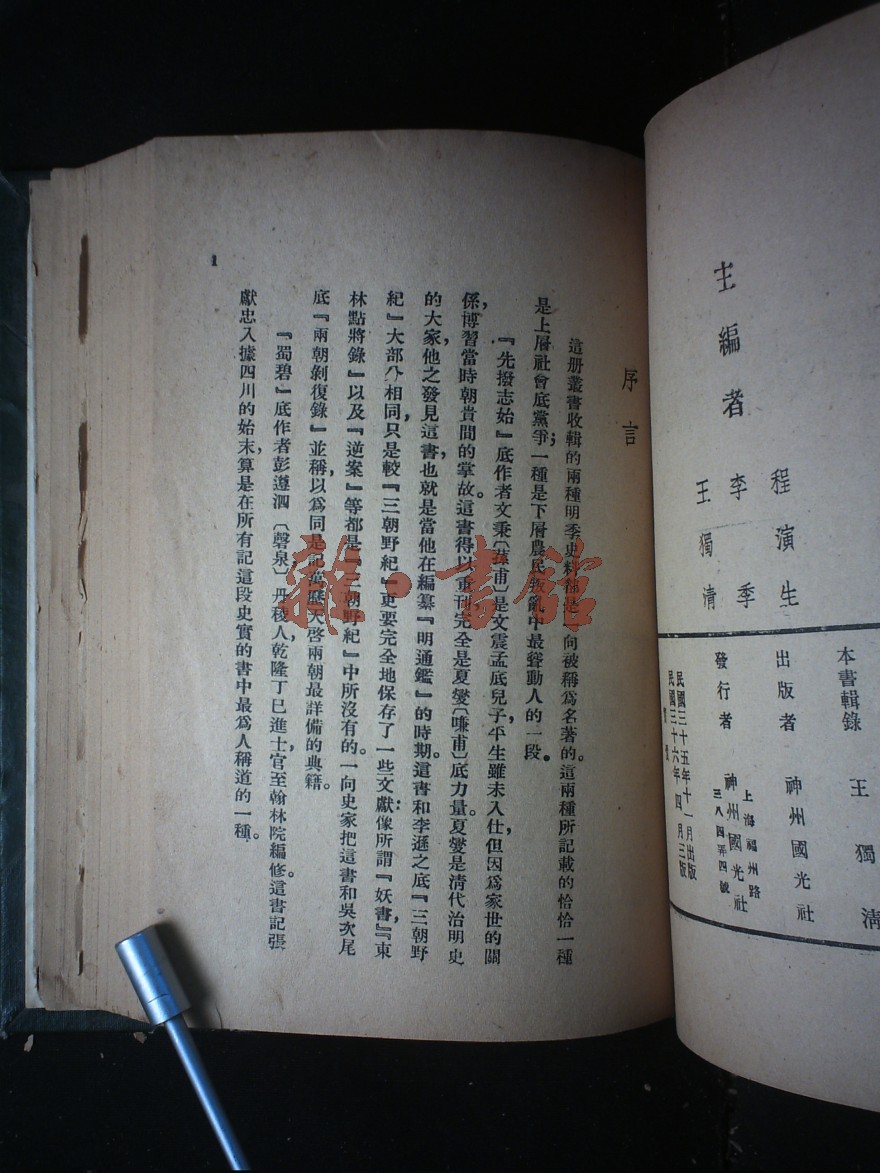 主編者
程演生
李季
王獨清
本書輯錄 王獨清
出版者 神州國光社
發行者 神州國光社
上海福州路
三八四弄四號
民國三十五年十一月出版
民國三十六年四月三版
序言
這册叢書收輯的兩種明季史料都是一向被稱爲名著的。這兩種所記載的恰恰一種
是上層社會底黨爭;一種是下層農民叛亂中最聳動人的一段。
『先撥志始』底作者文秉〔蓀甫〕是文震孟底兒子,平生雖未入仕,但因爲家世的關
係,博習當時朝貴間的掌故。這書得以重刊完全是夏燮〔嗛甫〕底力量。夏燮是清代治明史
的大家,他之發見這書,也就是當他在編纂『明通鑑』的時期。這書和李遜之底『三朝野
紀』大部分相同,只是較『三朝野紀』更要完全地保存了一些文獻:像所謂『妖書』,『東
林點將錄』以及『逆案』等都是『三朝野紀』中所沒有的。一向史家把這書和吳次尾
底『兩朝剝復錄』並稱,以爲同是記萬歷天啓兩朝最詳備的典籍。
『蜀碧』底作者彭遵泗〔磬泉〕,丹稜人,乾隆丁巳進士,官至翰林院編修。這書記張
獻忠入據四川的始末,算是在所有記這段史實的書中最爲人稱道的一種。
1
雜·書館